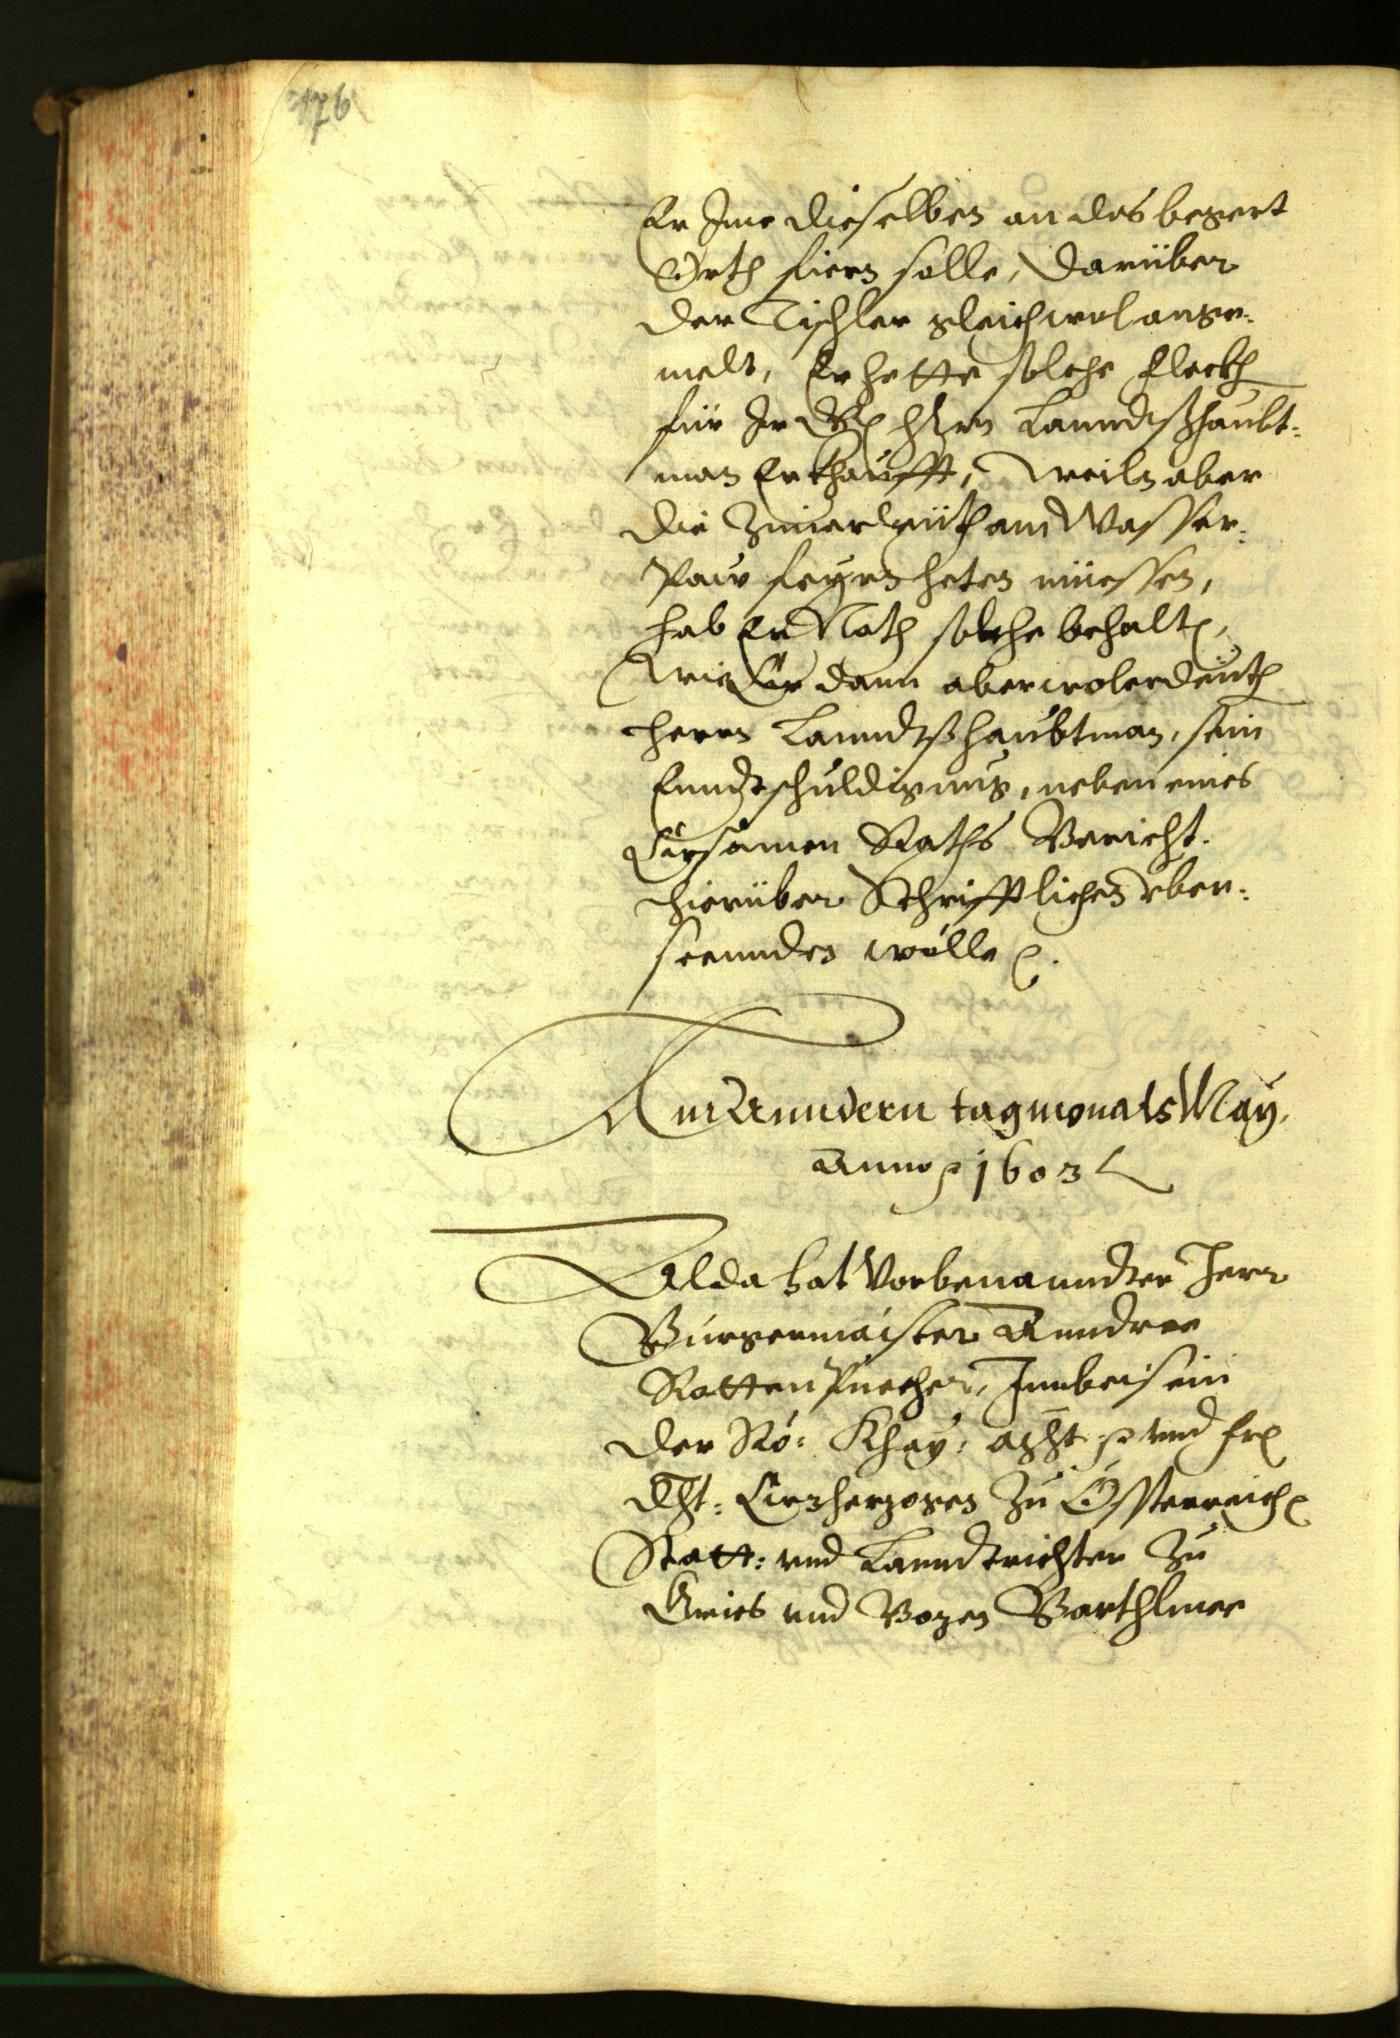 176
Er Ime dieselben an das begert
Orth fiern solle, darüber
der Tischler gleichwol ange-
melt, Er hette solche Fleckh
für Ir Gn. Herrn Lanndtshaubt-
man Erkhaufft, Weiln aber
die Zimerleüth am Wasser-
Paw feyrn heten müessen,
hab Er Noth solche behalten,
Wie Er dann aber wolerdeüth
herrn Lanndtshaubtman, sein
Enndtschuldigung, neben eines
Ersamen Raths Bericht
hierüber Schrifftlichen über-
seennden wölle.
Am Anndern tag monats May,
Anno 1603
Alda hat Vorbenanndter Herr
Burgermaister Anndree
Rottenpuecher, Innbeisein
der Rö: Khay: auch und Fr
Dht: Erzherzogen zu Össterreich
Statt: und Lanndtrichter zu
Gries und Bozen Barthlmee